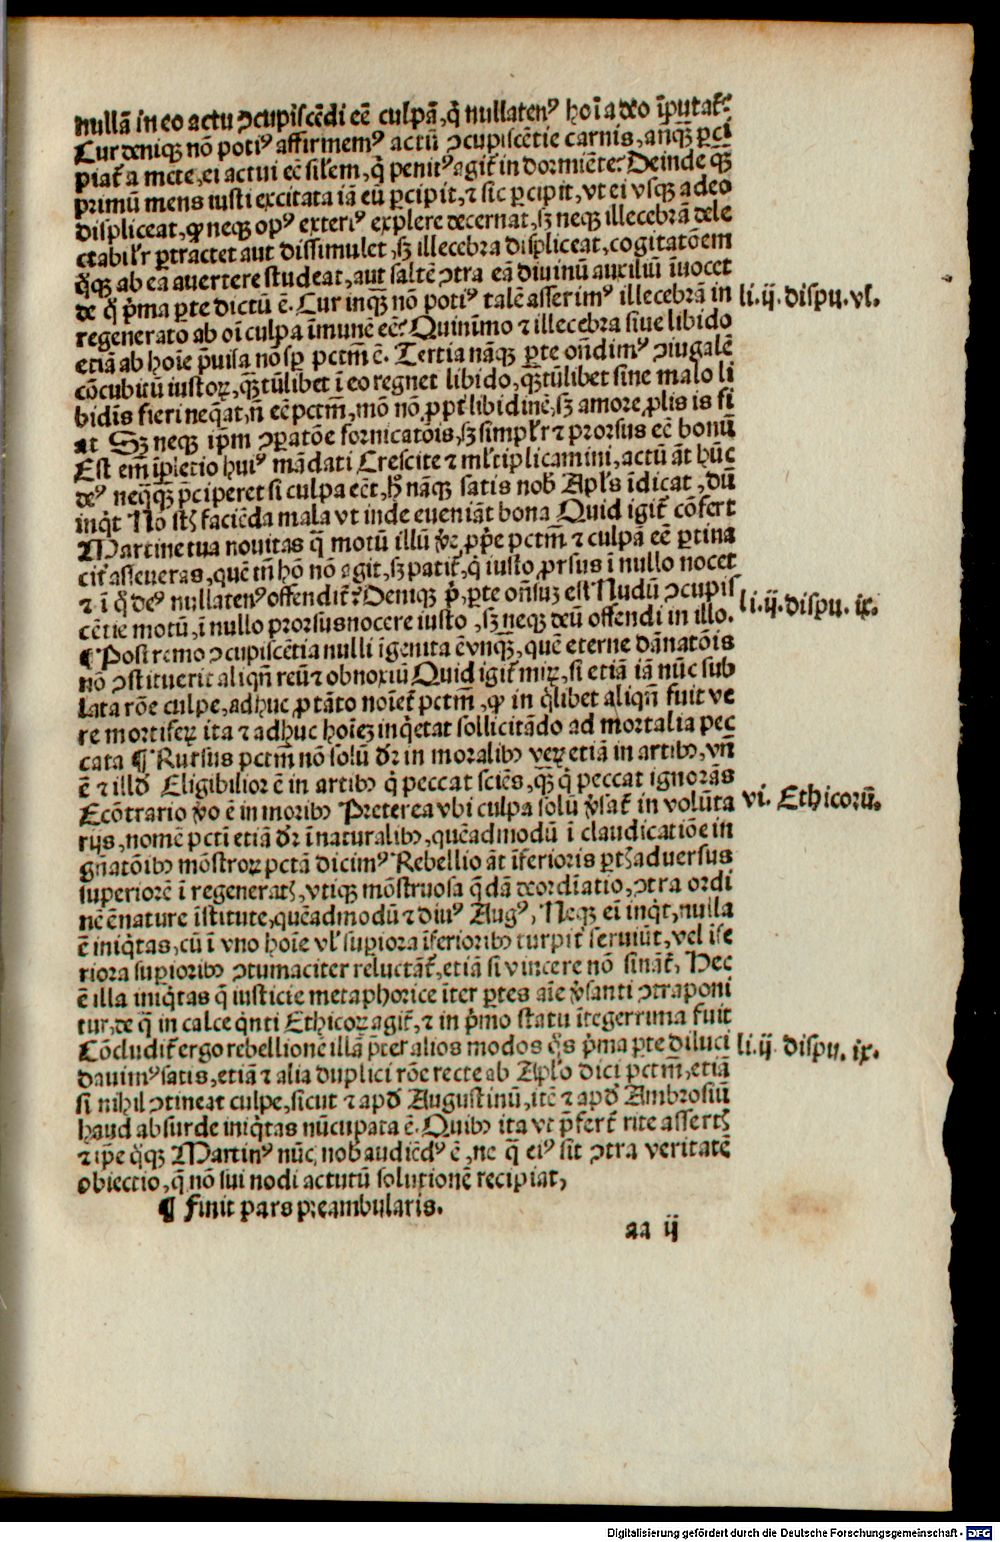 nullā in eo actu ꝯcupiscēdi eē culpā, q̇ nullatenꝰ hoī a deo īputat᷑?
Cur deniqꝫ nō potiꝰ affirmemꝰ actū ꝯcupiscētie carnis, anqꝫ ꝑci
piat᷑ a mēte, ei actui eē silem, q̇ penitꝰ agit᷑ in dormiēte? Deinde qꝫ
primū mens iusti excitata iā eū ꝑcipit, ⁊ sic ꝑcipit, vt ei vsqꝫ adeo
displiceat, ꝙ neqꝫ opꝰ exteriꝰ explere decernat, sꝫ neqꝫ illecebrā dele
ctabilr̄ ꝑtractet aut dissimulet, sꝫ illecebra displiceat, cogitatōem
q̇qꝫ ab ea auertere studeat, aut saltē ꝯtra eā diuinū auxiliū īuocet
de q̇ p̄ma ꝑte dictū ē. Cur inqꝫ nō potiꝰ talē asserimꝰ illecebrā in
li. ij. dispu. vl.
regenerato ab oī culpa īmunē eē? Quinīmo ⁊ illecebra siue libido
etiā ab hoīe p̄uisa nō sꝑ pctm̄ ē. Tertia nāqꝫ ꝑte oñdimꝰ ꝯiugalē
cōcubitū iustoꝝ, qꝫtūlibet ī eo regnet libido, qꝫtūlibet sine malo li
bidīs fieri neq̄at, ñ eē pctm̄, mō nō ꝓpt᷑ libidinē, sꝫ amore ꝓlis is fi
at Sꝫ neqꝫ ip̄m ꝯꝑatōe fornicatōis, sꝫ simplr̄ ⁊ prorsus eē bonū
Est em̄ īpletio huiꝰ mādati Crescite ⁊ ml̄tiplicamini, actū āt hūc
deꝰ neq̄qꝫ p̄ciperet si culpa eēt, hͦ nāqꝫ satis nob̄ Apl̄s īdicat, dū
inq̇t Nō st̄ faciēda mala vt inde eueniāt bona Quid igit᷑ cōfert
Martine tua nouitas q̄ motū illū v̄e ꝓpe pctm̄ ⁊ culpā eē ꝑtina
cit᷑ asseueras, quē tñ hō nō agit, sꝫ patit᷑, q̇ iusto ꝓrsus ī nullo nocet
⁊ ī q̇ deꝰ nullatenꝰ offendit᷑? Deniqꝫ p̄. ꝑte oñsuꝫ est Nudū ꝯcupis
li. ij. dispu. ix.
cētie motū, ī nullo prorsus nocere iusto, sꝫ neqꝫ deū offendi in illo.
¶ Postremo ꝯcupiscētia nulli īgenita ē vnqꝫ, quē eterne dānatōis
nō ꝯstituerit aliqñ reū ⁊ obnoxiū Quid igit᷑ miꝝ, si etiā iā nūc sub
lata rōe culpe, adhuc ꝓtāto noīet᷑ pctm̄, ꝙ in q̇libet aliqñ fuit ve
re mortifeꝝ ita ⁊ adhuc hoīeꝫ inq̇etat sollicitādo ad mortalia pec
cata ¶ Rursus pctm̄ nō solū dr̄ in moralibꝰ veꝝ etiā in artibꝰ, vñ
ē ⁊ illd̄ Eligibilior ē in artibꝰ q̇ peccat sciēs, qꝫ q̇ peccat ignorās
Ecōtrario v̄o ē in moribꝰ Preterea vbi culpa solū v̄sat᷑ in volūta
vi. Ethicorū.
rijs, nomē pcti etiā dr̄ ī naturalibꝰ, quēadmodū ī claudicatiōe in
gñatōibꝰ mōstroꝝ pctā dicimꝰ Rebellio āt īferioris ꝑtꝭ aduersus
superiorē ī regeneratꝭ, vtiqꝫ mōstruosa q̄dā deordīatio, ꝯtra ordi
nē ē nature īstitute, quēadmodū ⁊ diuꝰ Augꝰ, Neqꝫ ei inq̇t, nulla
ē iniq̇tas, cū ī vno hoīe vl̓ suꝑiora īferioribꝰ turpit᷑ seruiūt, vel īfe
riora suꝑioribꝰ ꝯtumaciter reluctāt᷑, etiā si vincere nō sināt᷑, Hec
ē illa iniq̇tas q̄ iusticie metaphorice īter ꝑtes aīe v̄santi ꝯtraponi
tur, de q̄ in calce q̇nti Ethicoꝝ agit᷑, ⁊ in p̄mo statu ītegerrima fuit
Cōcludit᷑ ergo rebellionē illā p̄ter alios modos q̇s p̄ma ꝑte diluci
li. ij. dispu. ix.
dauimꝰ satis, etiā ⁊ alia duplici rōe recte ab Apl̄o dici pctm̄, etiā
si nihil ꝯtineat culpe, sicut ⁊ apd̄ Augustinū, itē ⁊ apd̄ Ambrosiū
haud absurde iniq̇tas nūcupata ē. Quibꝰ ita vt p̄fert᷑ rite assertꝭ
⁊ ip̄e q̇qꝫ Martinꝰ nūc nob̄ audiēdꝰ ē, ne q̄ eiꝰ sit ꝯtra veritatē
obiectio, q̄ nō sui nodi actutū solutionē recipiat,
¶ Finit pars preambularis.
aa ij
Digitalisierung gefördert durch die Deutsche Forschungsgemeinschaft - DFG